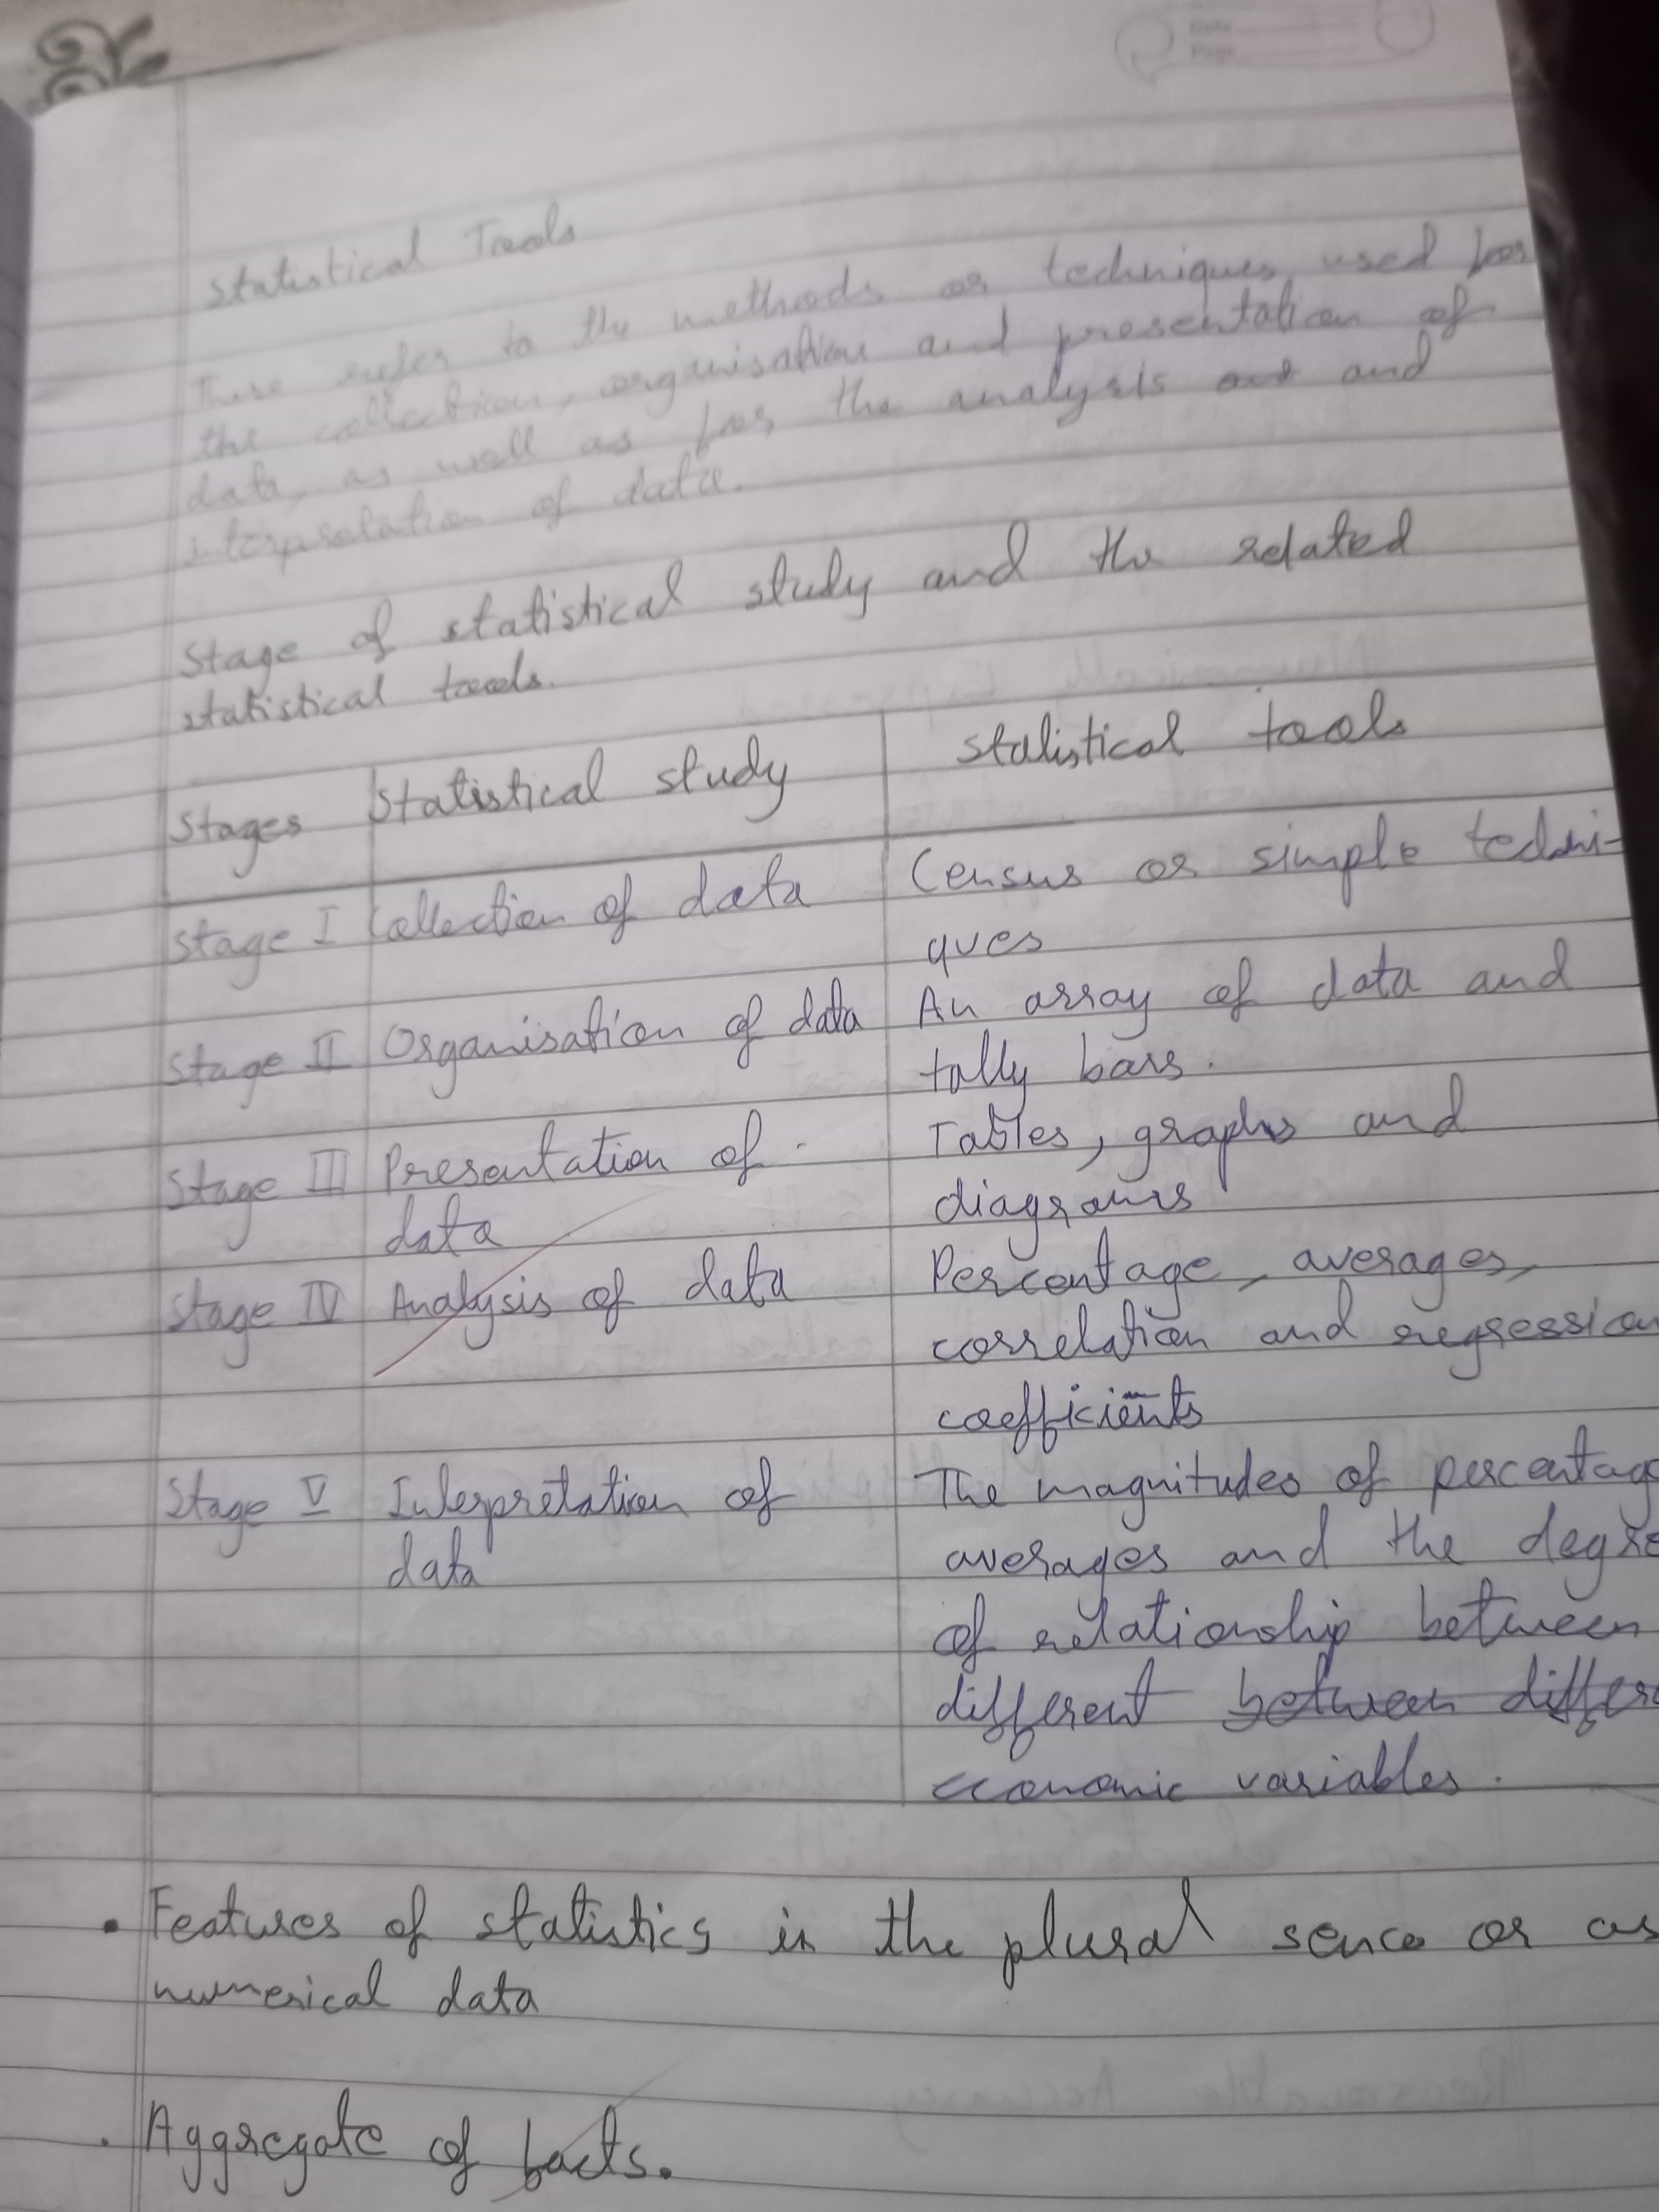 Date
Page
Statistical Tools
These refer to the methods or techniques used for
the collection, organisation and presentation of
data, as well as for the analysis and and
interpretation of data.
Stage of statistical study and the related
statistical tools.
Stages Statistical study statistical tools
Stage I Collection of data Census or simple techni-
ques
Stage II Organisation of data An array of data and
tally bars.
Stage III Presentation of Tables, graphs and
data diagrams
Stage IV Analysis of data Percentage, averages,
correlation and regression
coefficients
Stage V Interpretation of The magnitudes of percentage
data averages and the degre
of relationship between
different between differe
economic variables.
• Features of statistics in the plural sence or as
numerical data
• Aggregate of facts.